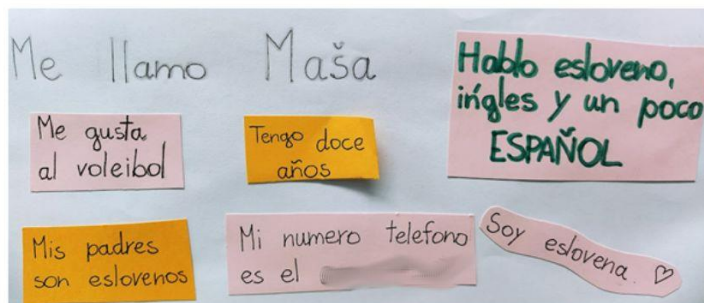 Me llamo Maša
Hablo esloveno,
ingles y un poco
ESPAÑOL
Me gusta
al voleibol
Tengo doce
años
Mis padres
son eslovenos
Mi numero telefono
es el
Soy eslovena ♡